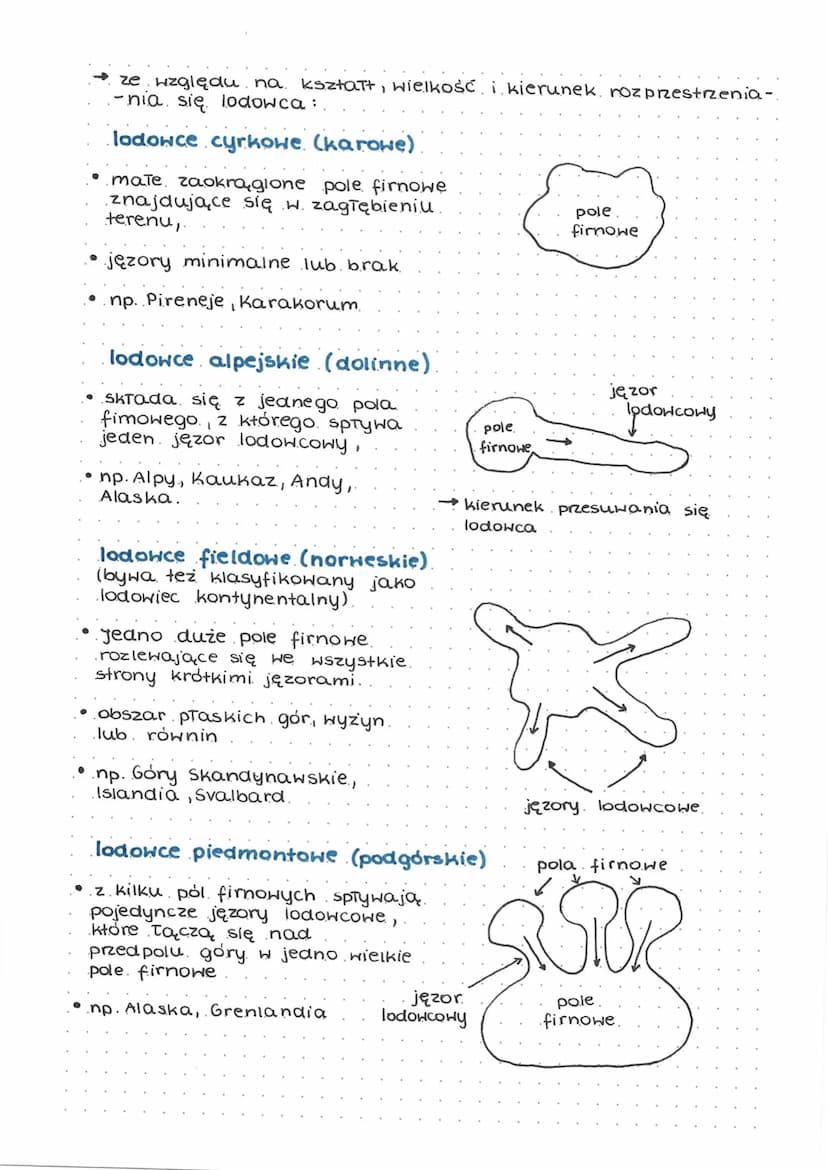 → ze względu na kształt, wielkość i kierunek rozprzestrzenia-
-nia się lodowca:
lodowce cyrkowe (karowe)
• małe zaokrąglone pole firnowe
znajdujące się w zagłębieniu
terenu,
pole
firnowe
• jęzory minimalne lub brak
• np. Pireneje, Karakorum
lodowce alpejskie (dolinne)
• składa się z jednego pola
firnowego, z którego spływa
jeden jęzor lodowcowy,
jęzor
lodowcowy
pole
firnowe
• np. Alpy, Kaukaz, Andy,
Alaska.
→ kierunek przesuwania się
lodowca
lodowce fieldowe (norweskie)
(bywa też klasyfikowany jako
lodowiec kontynentalny)
• jedno duże pole firnowe
rozlewające się we wszystkie
strony krótkimi jęzorami.
• obszar płaskich gór, wyżyn
lub równin
• np. Góry Skandynawskie,
Islandia, Svalbard
jęzory lodowcowe
lodowce piedmontowe (podgórskie)
pola firnowe
• z kilku pól firnowych spływają
pojedyncze jęzory lodowcowe,
które łączą się nad
przedpolu góry w jedno wielkie
pole firnowe
jęzor
lodowcowy
pole
firnowe
• np. Alaska, Grenlandia